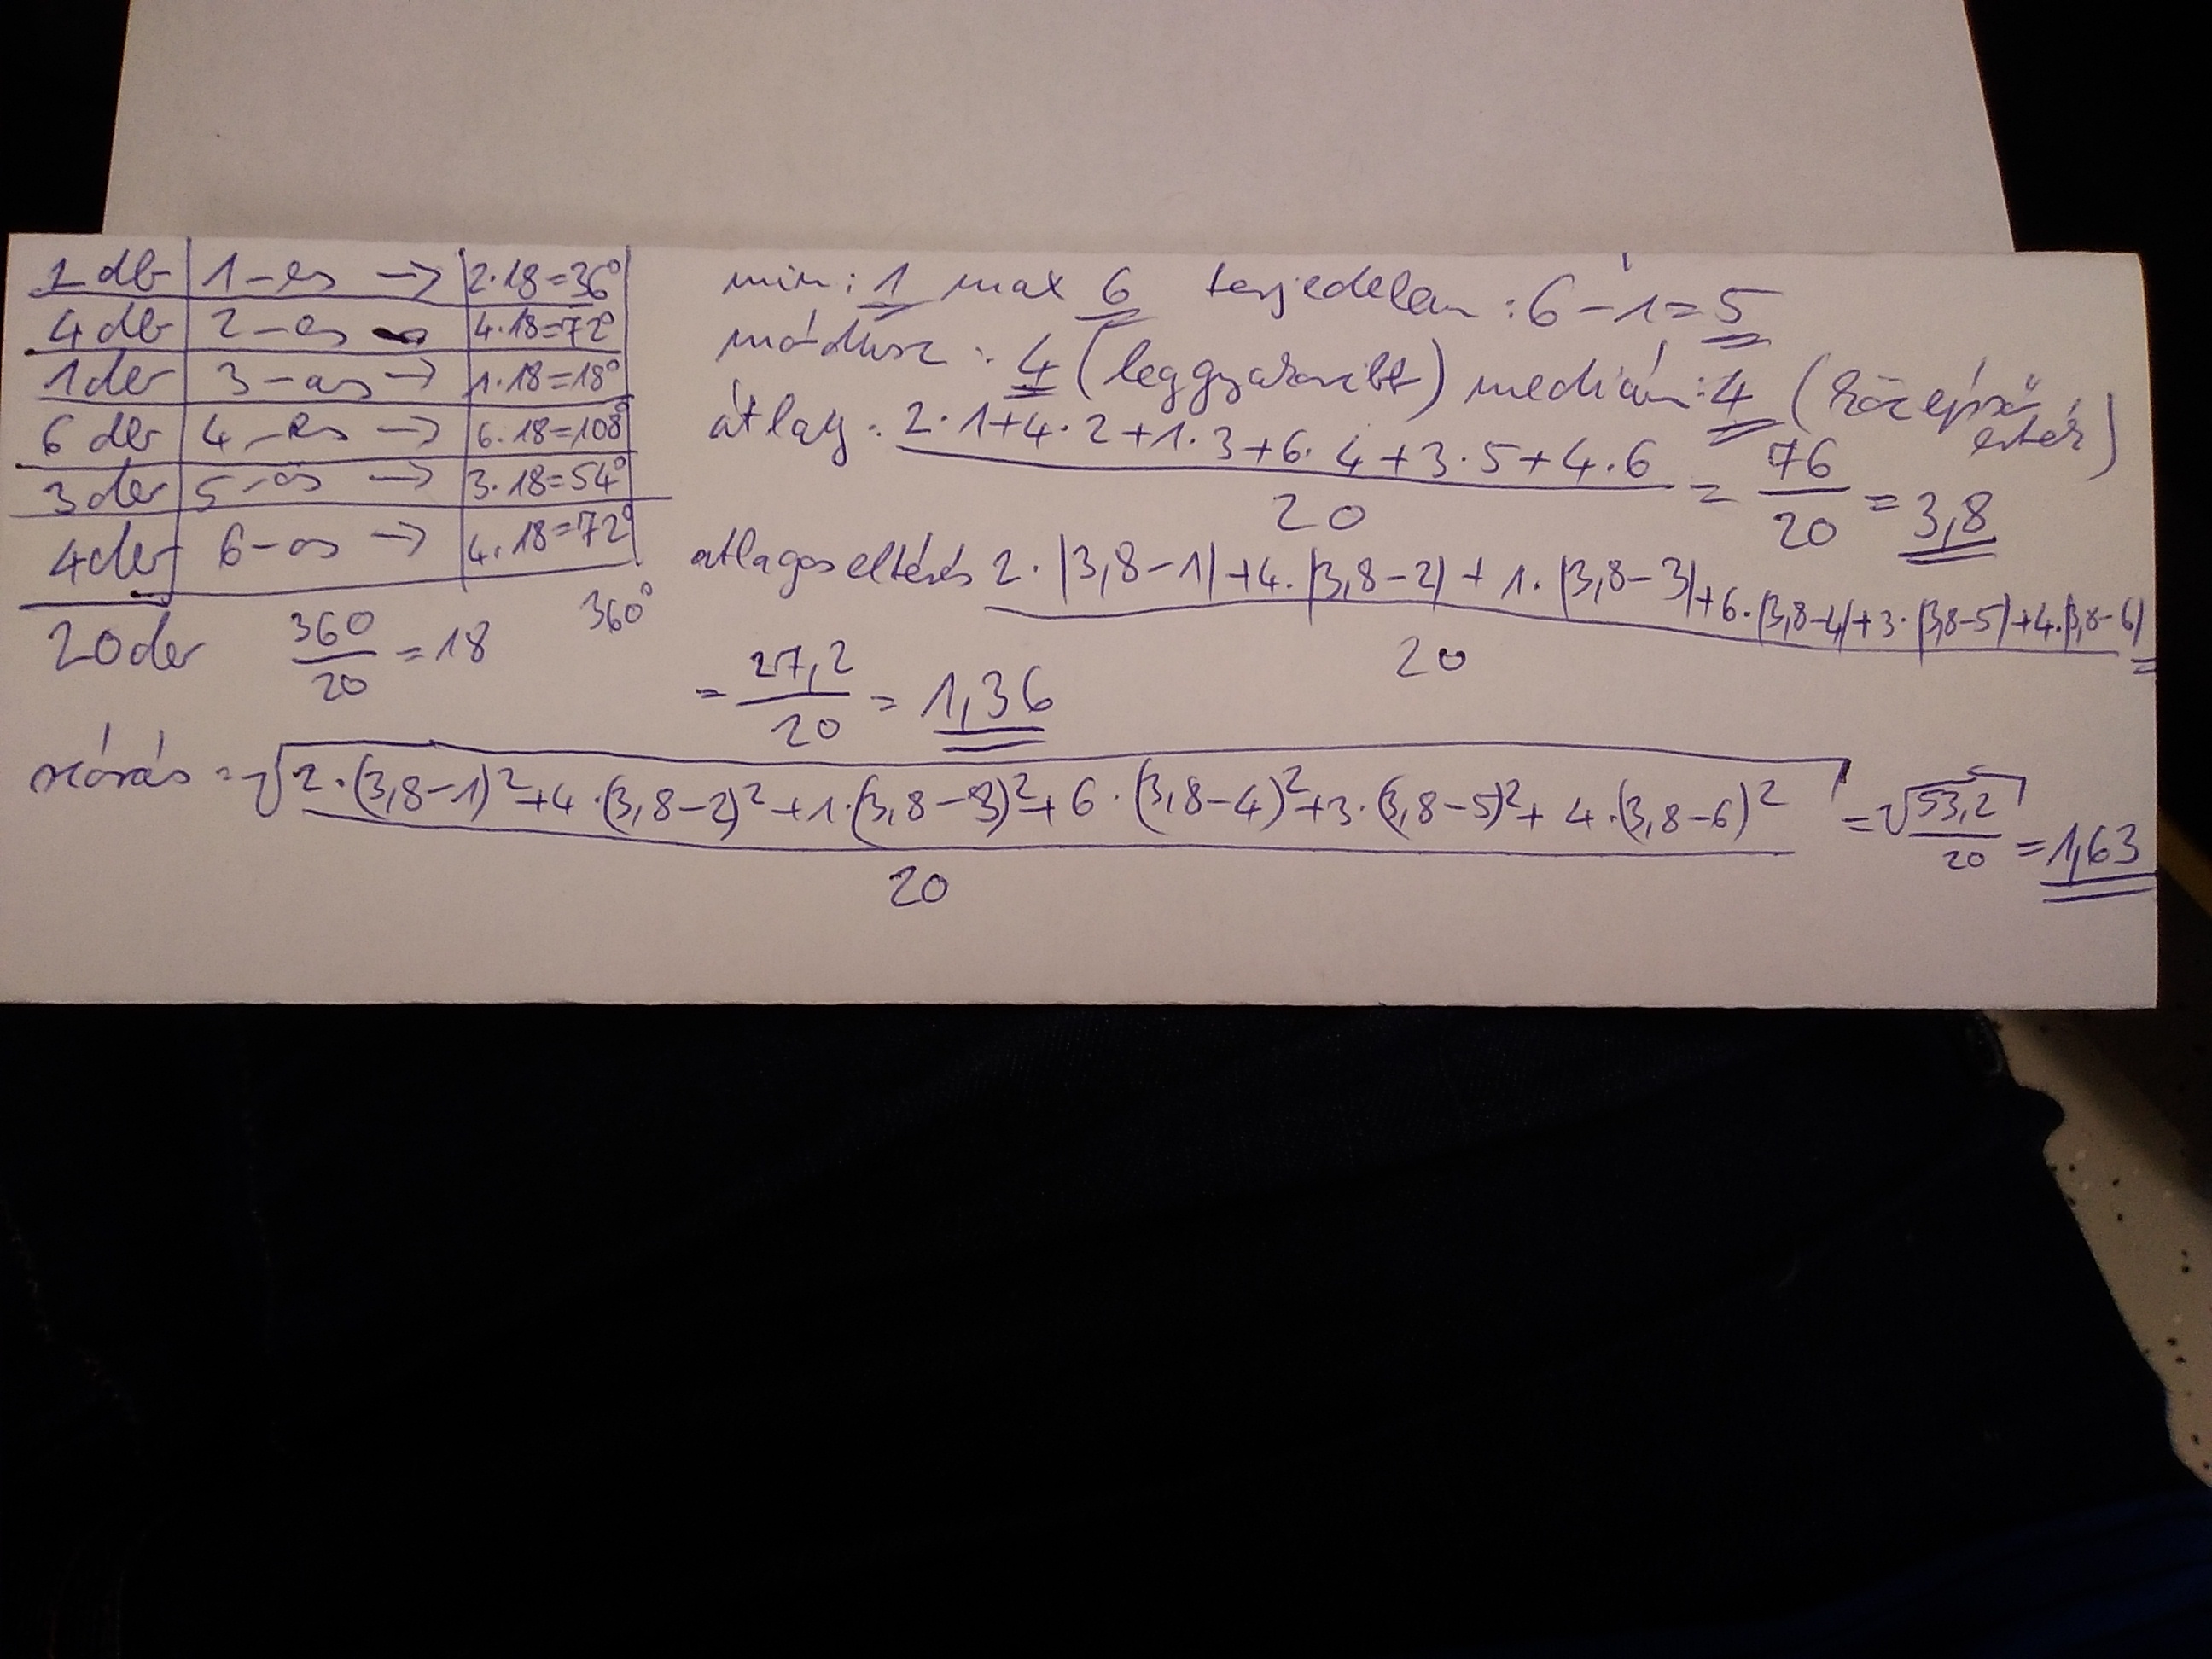 2 db 1-es → 2·18=36°
4 db 2-es → 4·18=72°
1 db 3-as → 1·18=18°
6 db 4-es → 6·18=108°
3 db 5-ös → 3·18=54°
4 db 6-os → 4·18=72°
20 db 360/20 = 18 360°
min: 1 max 6 terjedelem: 6-1=5
módusz: 4 (leggyakoribb) medián: 4 (középső érték)
átlag: (2·1+4·2+1·3+6·4+3·5+4·6)/20 = 76/20 = 3,8
átlagos eltérés (2·|3,8-1|+4·|3,8-2|+1·|3,8-3|+6·|3,8-4|+3·|3,8-5|+4·|3,8-6|)/20 =
= 27,2/20 = 1,36
szórás = √((2·(3,8-1)²+4·(3,8-2)²+1·(3,8-3)²+6·(3,8-4)²+3·(3,8-5)²+4·(3,8-6)²)/20) = √(53,2/20) = 1,63